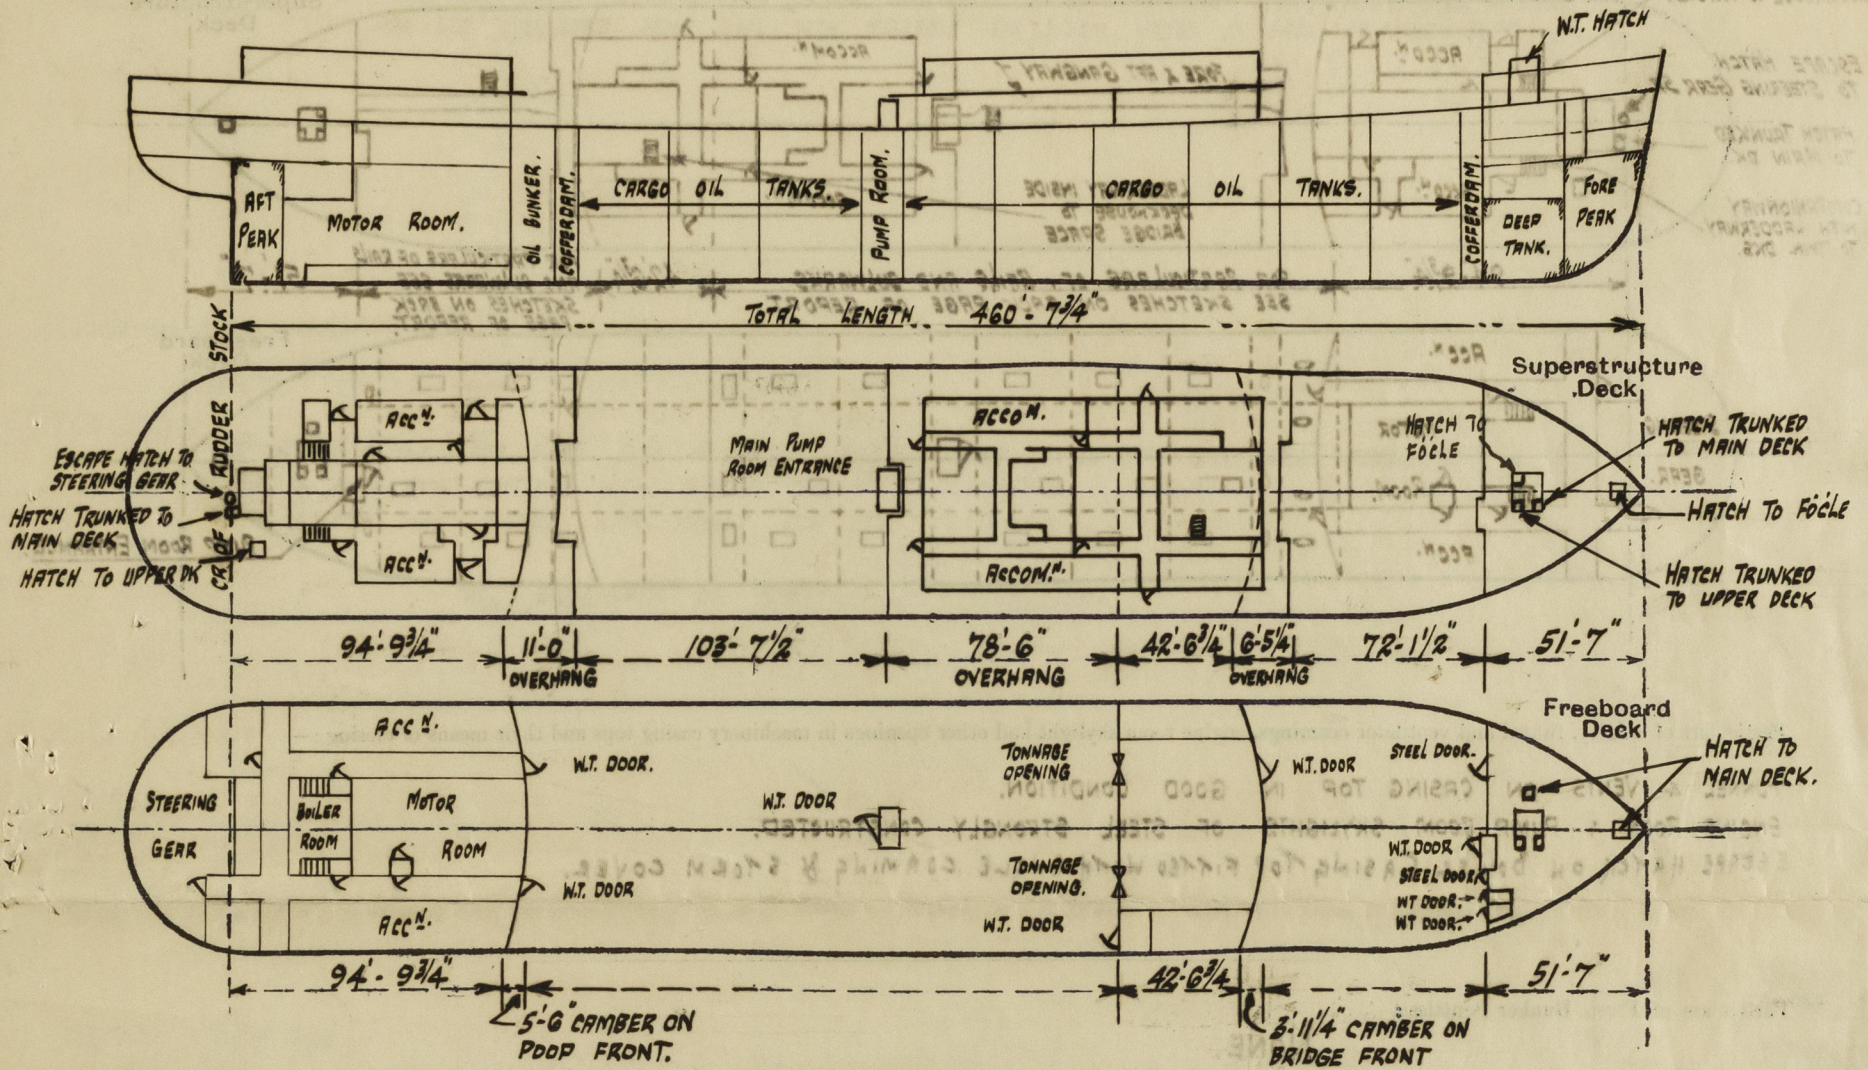 W.T. HATCH
AFT
PEAK
MOTOR ROOM.
OIL BUNKER.
COFFERDAM.
CARGO OIL TANKS.
PUMP ROOM.
CARGO OIL TANKS.
COFFERDAM.
DEEP
TANK.
FORE
PEAK
TOTAL LENGTH 460'-7¾"
CR OF RUDDER STOCK
Superstructure
Deck
ACCN.
ACCN.
ESCAPE HATCH TO
STEERING GEAR
HATCH TRUNKED TO
MAIN DECK
HATCH TO UPPER DK
MAIN PUMP
ROOM ENTRANCE
ACCOM.
ACCOM.N.
HATCH TO
FO'C'LE
HATCH TRUNKED
TO MAIN DECK
HATCH TO FO'C'LE
HATCH TRUNKED
TO UPPER DECK
94'-9¾" 11'-0" 103'-7½" 78'-6" 42'-6¾" 6'-5¼" 72'-1½" 51'-7"
OVERHANG OVERHANG OVERHANG
Freeboard
Deck
ACCN.
STEERING
GEAR
BOILER
ROOM
MOTOR
ROOM
ACCN.
W.T. DOOR.
W.T. DOOR
W.T. DOOR
TONNAGE
OPENING
TONNAGE
OPENING.
W.T. DOOR
W.T. DOOR
STEEL DOOR.
W.T. DOOR
STEEL DOOR
WT DOOR.
WT DOOR.
HATCH TO
MAIN DECK.
94'-9¾" 42'-6¾ 51'-7"
5'-6" CAMBER ON
POOP FRONT.
3'-11¼" CAMBER ON
BRIDGE FRONT